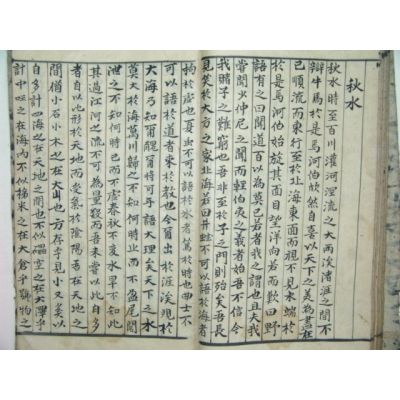 秋水
秋水時至百川灌河涇流之大兩涘渚涯之間不
辯牛馬於是焉河伯欣然自喜以天下之美為盡在
己順流而東行至於北海東面而視不見水端
於是焉河伯始旋其面目望洋向若而歎曰野
語有之曰聞道百以為莫己若者我之謂也且夫我
嘗聞少仲尼之聞而輕伯夷之義者始吾不信今
我睹子之難窮也吾非至於子之門則殆矣吾長
見笑於大方之家北海若曰井蛙不可以語於海者
拘於虛也夏虫不可以語於冰者篤於時也曲士不
可以語於道者束於教也今爾出於涯涘觀於
大海乃知爾醜爾將可与語大理矣天下之水
莫大於海萬川歸之不知何時止而不盈尾閭
泄之不知何時已而不虛春秋不變水旱不知此
其過江河之流不可為量數而吾未嘗以此自多
者自以比形於天地而受氣於陰陽吾在天地之
間猶小石小木之在大山也方存乎見小又奚以
自多計四海之在天地之間也不似礨空之在大澤乎
計中国之在海內不似稊米之在大倉乎號物之